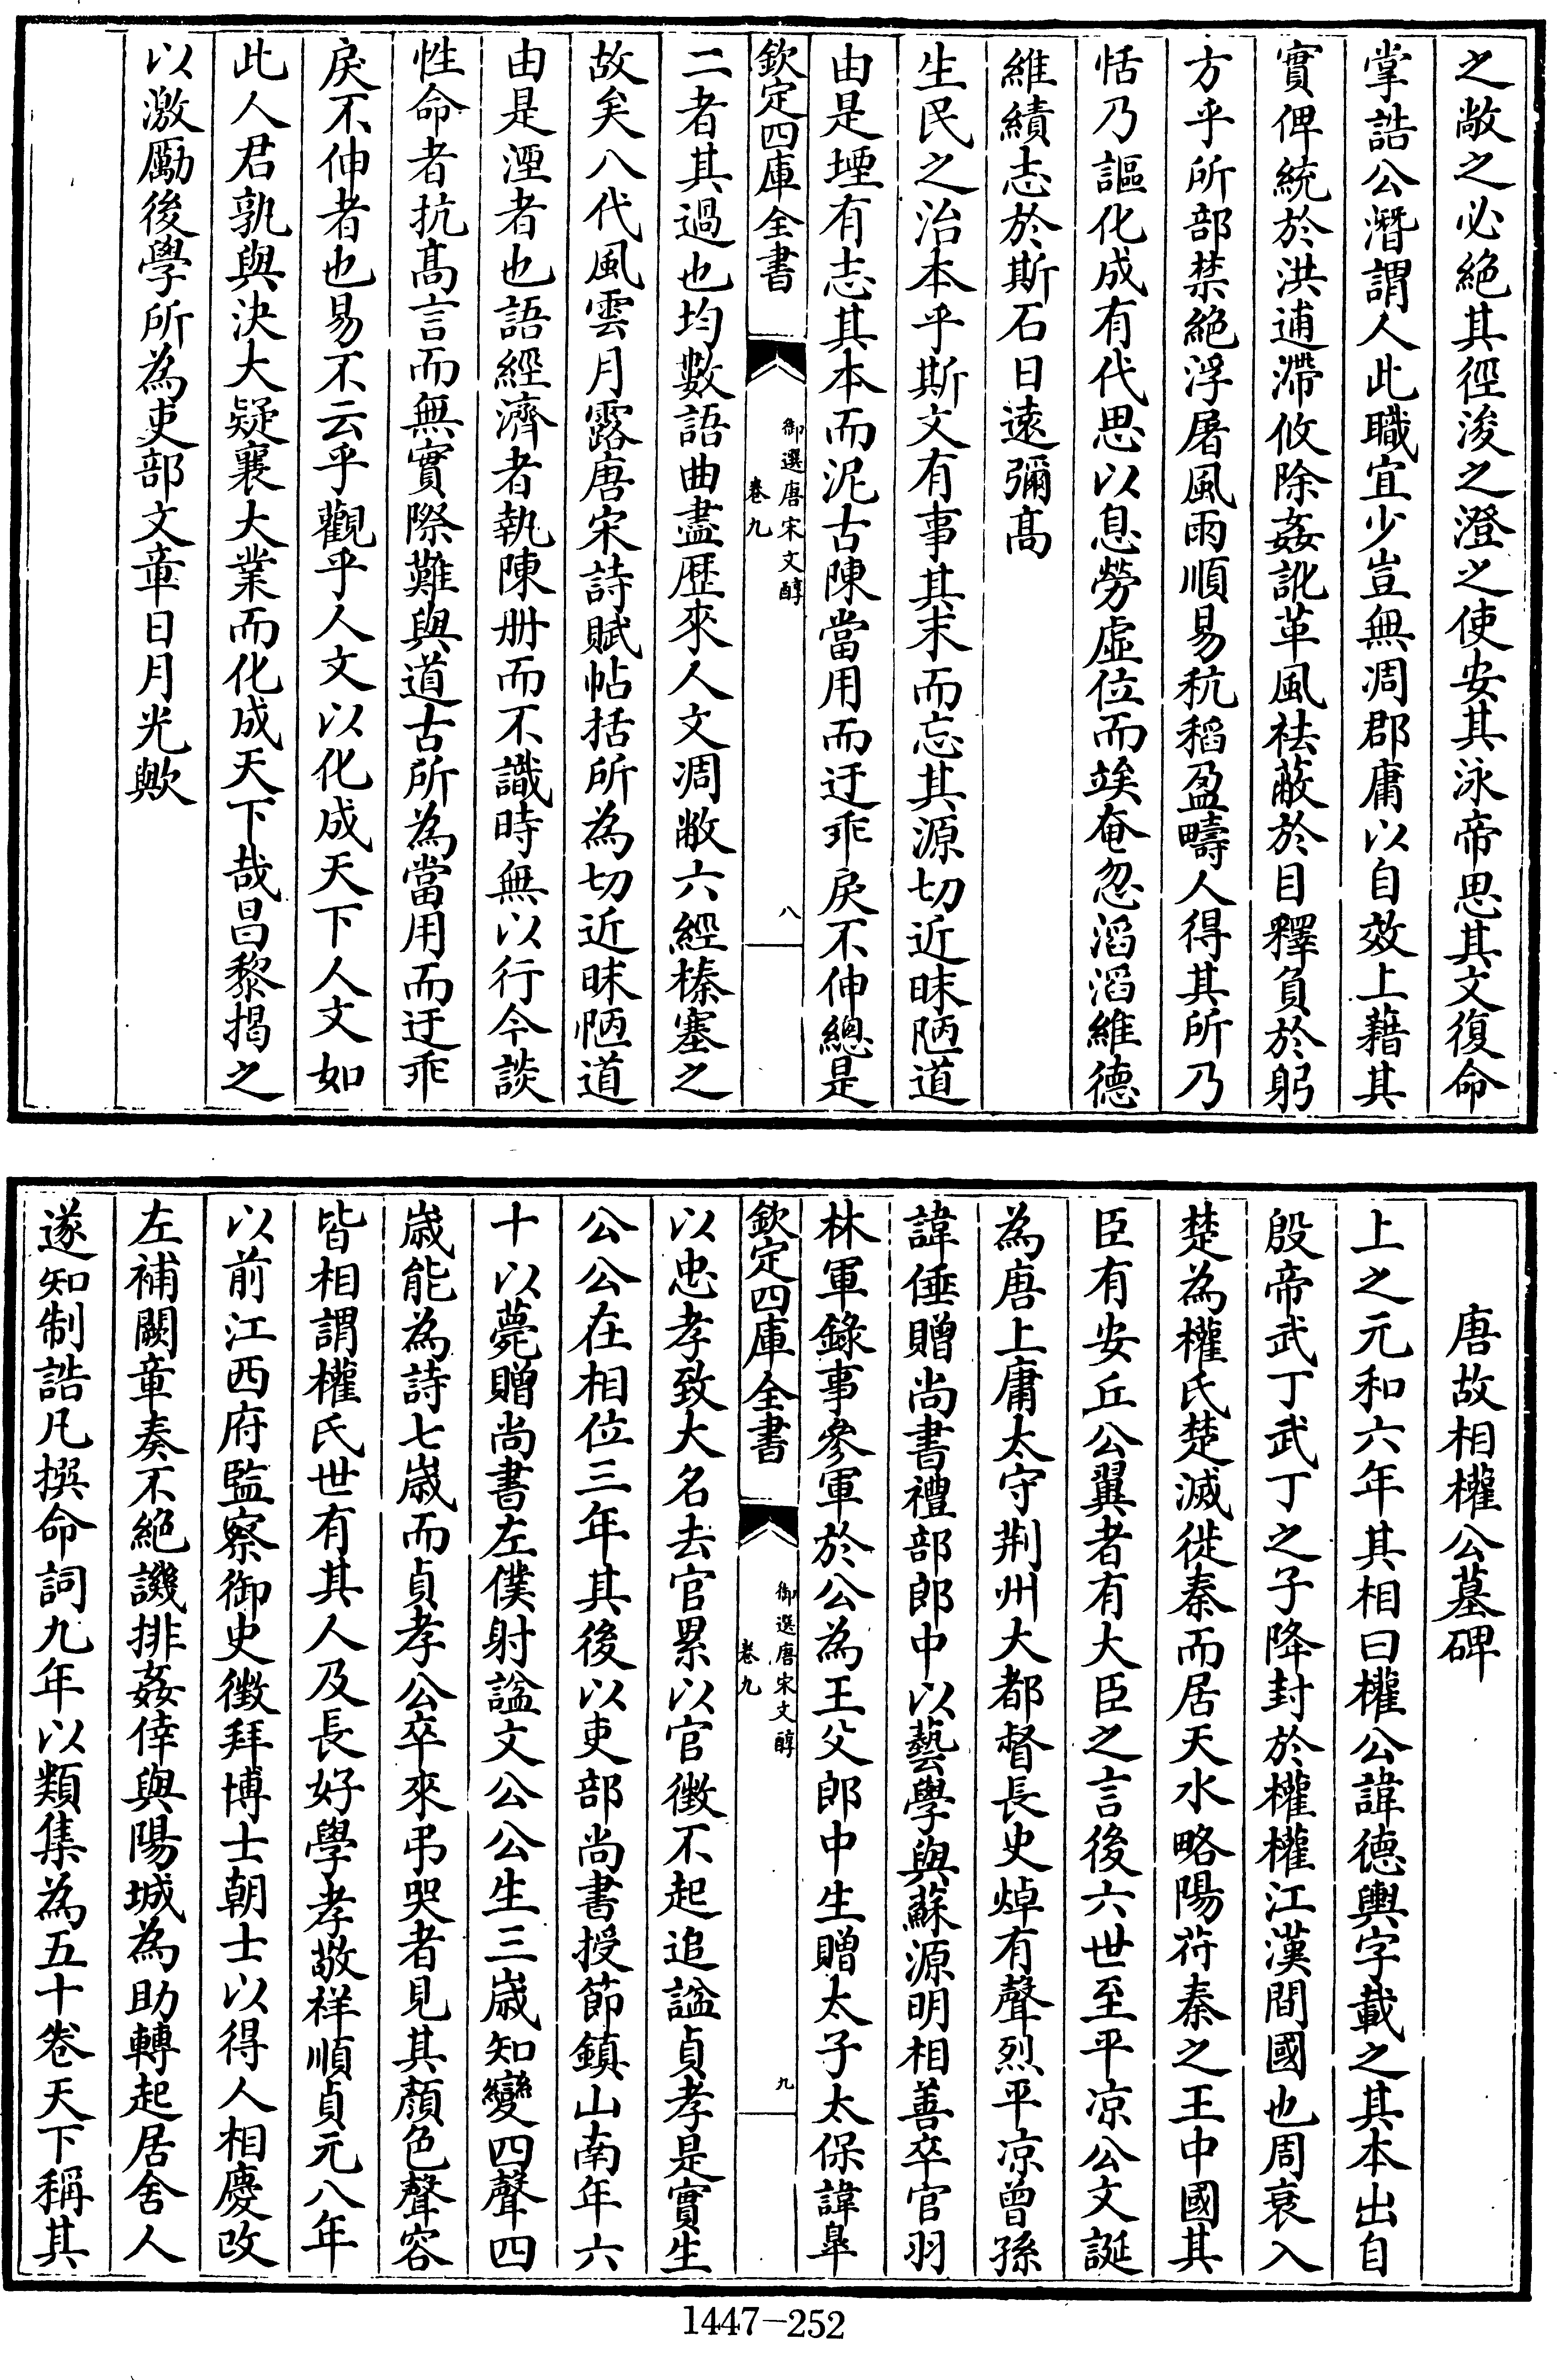 之敞之必絕其徑浚之澄之使安其泳帝思其文復命
掌誥公潛謂人此職宜少豈無凋郡庸以自效上藉其
實俾統於洪逋滯攸除姦訛革風袪蔽於目釋負於躬
方乎所部禁絕浮屠風雨順易秔稻盈疇人得其所乃
恬乃謳化成有代思以息勞虛位而竢奄忽滔滔維德
維績志於斯石日遠彌高
生民之治本乎斯文有事其末而忘其源切近昧陋道
由是堙有志其本而泥古陳當用而迂乖戾不伸總是
欽定四庫全書
御選唐宋文醇
卷九
八
二者其過也均數語曲盡歴來人文凋敝六經榛塞之
故矣八代風雲月露唐宋詩賦帖括所為切近昧陋道
由是湮者也語經濟者執陳册而不識時無以行今談
性命者抗高言而無實際難與道古所為當用而迂乖
戾不伸者也易不云乎觀乎人文以化成天下人文如
此人君孰與決大疑襄大業而化成天下哉昌黎揭之
以激厲後學所為吏部文章日月光歟
唐故相權公墓碑
上之元和六年其相曰權公諱德輿字載之其本出自
殷帝武丁武丁之子降封於權權江漢間國也周衰入
楚為權氏楚滅徙秦而居天水略陽苻秦之王中國其
臣有安丘公翼者有大臣之言後六世至平凉公文誕
為唐上庸太守荆州大都督長史焯有聲烈平凉曾孫
諱倕贈尚書禮部郎中以藝學與蘇源明相善卒官羽
林軍錄事參軍於公為王父郎中生贈太子太保諱臯
欽定四庫全書
御選唐宋文醇
卷九
九
以忠孝致大名去官累以官徵不起追諡貞孝是實生
公公在相位三年其後以吏部尚書授節鎮山南年六
十以薨贈尚書左僕射諡文公公生三歲知變四聲四
歲能為詩七歲而貞孝公卒來弔哭者見其顏色聲容
皆相謂權氏世有其人及長好學孝敬祥順貞元八年
以前江西府監察御史徵拜博士朝士以得人相慶改
左補闕章奏不絕譏排姦倖與陽城為助轉起居舍人
遂知制誥凡撰命詞九年以類集為五十卷天下稱其
1447-252